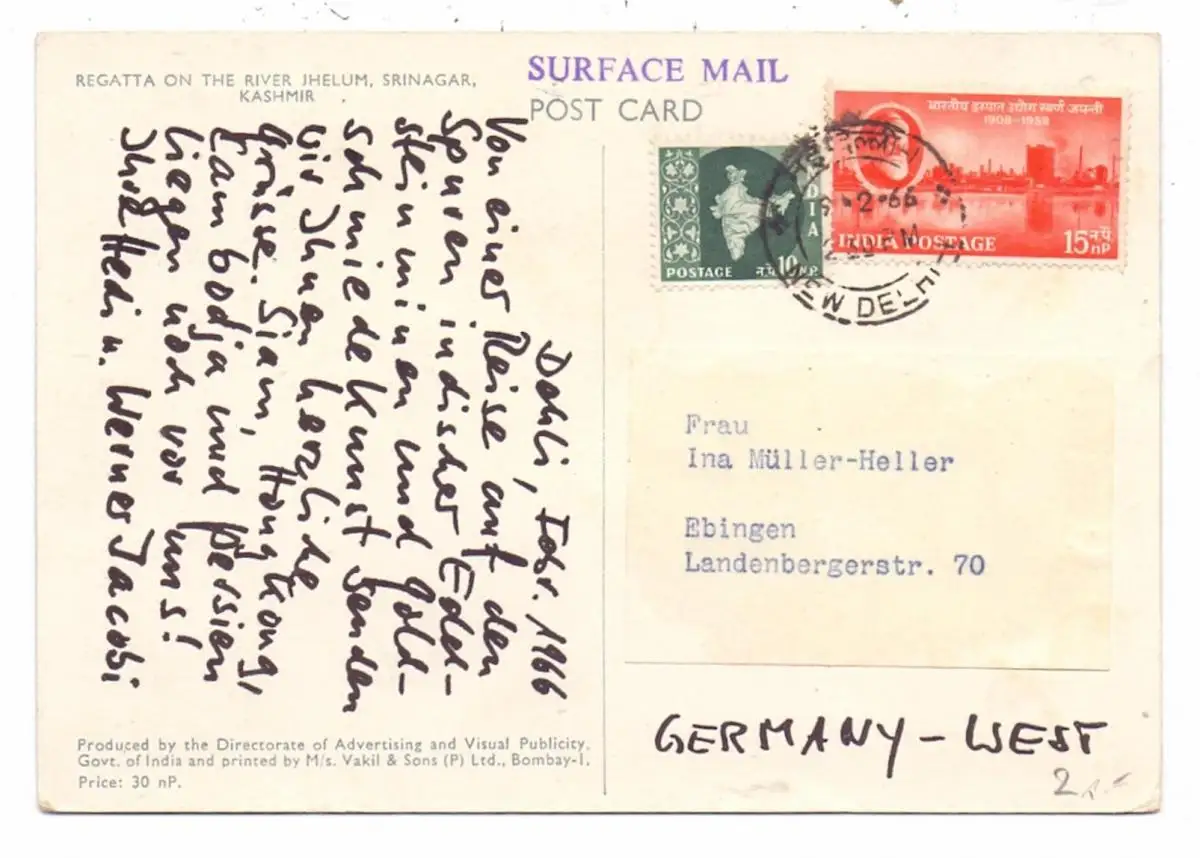 REGATTA ON THE RIVER JHELUM, SRINAGAR,
KASHMIR
SURFACE MAIL
POST CARD
Dehli, Febr. 1966
Von einer Reise auf den
Spuren indischer Edel-
steinminen und Gold-
schmiedekunst senden
wir Ihnen herzliche
Grüsse. Siam, Hongkong,
Cambodja und Persien
liegen noch vor uns!
Ihre Hedi u. Werner Jacobi
Produced by the Directorate of Advertising and Visual Publicity,
Govt. of India and printed by M/s. Vakil & Sons (P) Ltd., Bombay-1.
Price: 30 nP.
POSTAGE न.पै. 10 N.P.
भारतीय इस्पात उद्योग स्वर्ण जयन्ती
1908-1958
INDIA POSTAGE
15 न.पै. nP
2·66
PM
NEW DELHI
Frau
Ina Müller-Heller
Ebingen
Landenbergerstr. 70
GERMANY - WEST
2,-